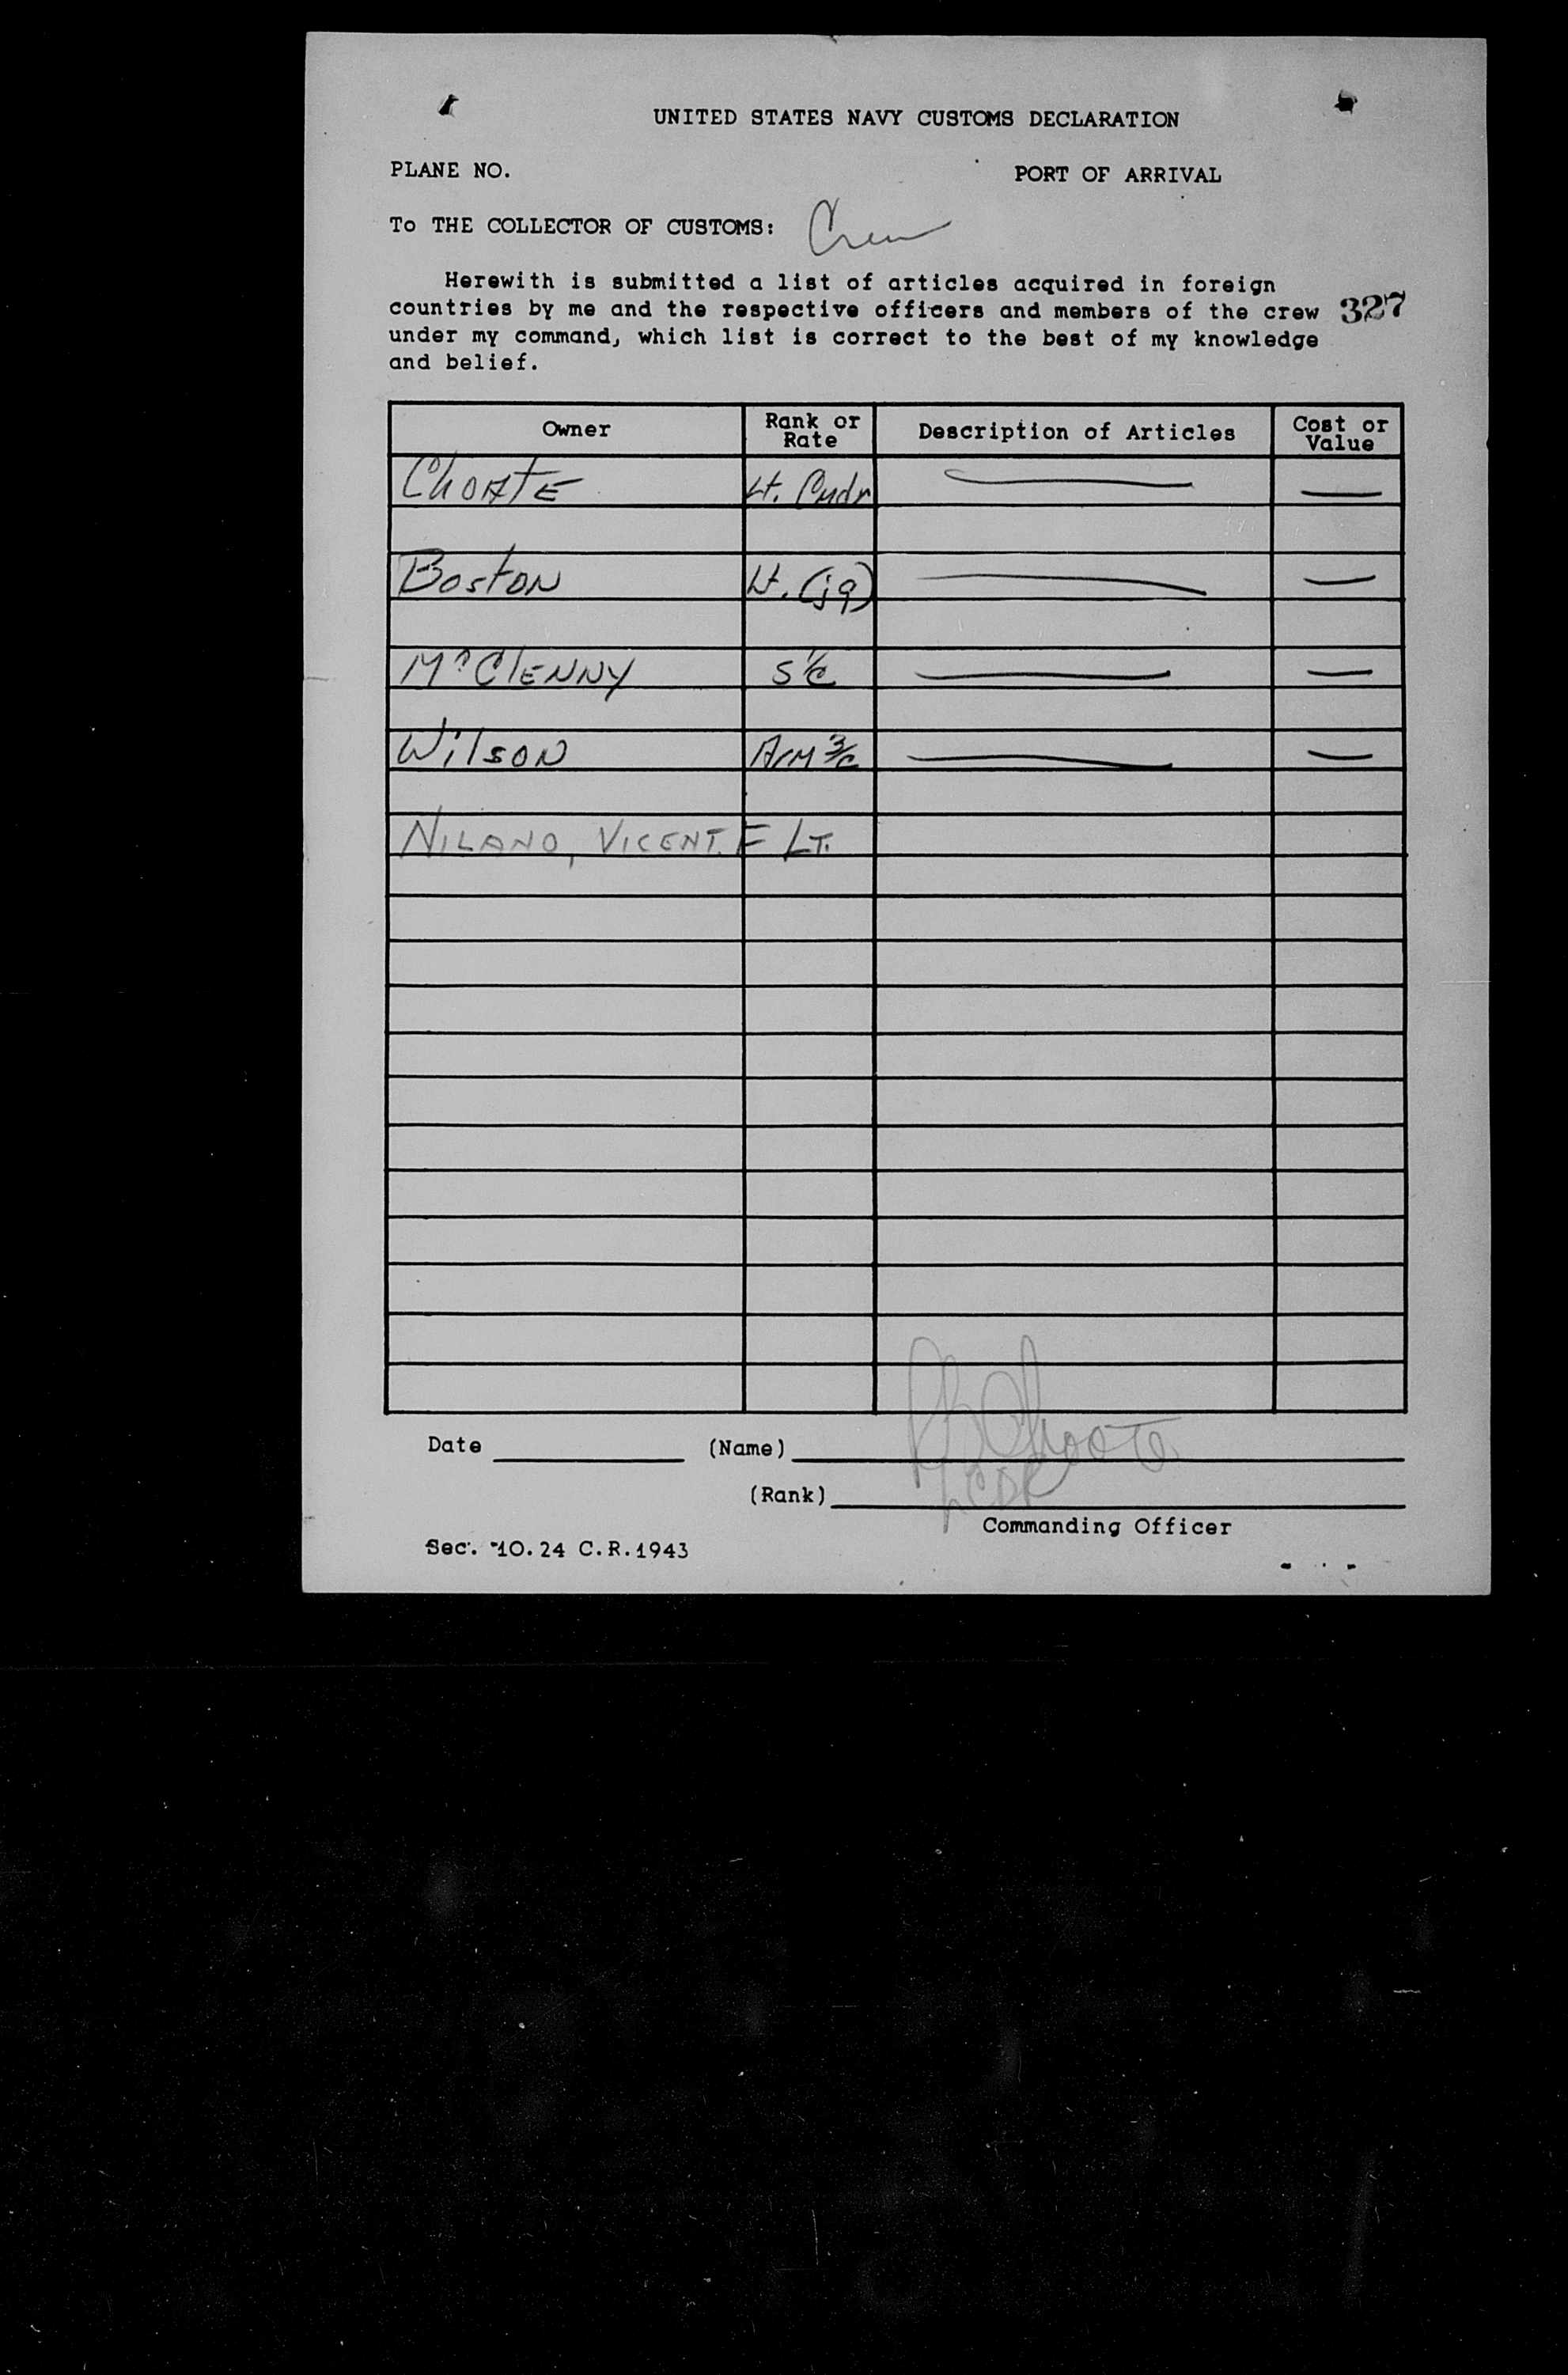 UNITED STATES NAVY CUSTOMS DECLARATION
PLANE NO. PORT OF ARRIVAL
To THE COLLECTOR OF CUSTOMS: Crew
Herewith is submitted a list of articles acquired in foreign
countries by me and the respective officers and members of the crew 327
under my command, which list is correct to the best of my knowledge
and belief.
Owner Rank or Rate Description of Articles Cost or Value
Choate Lt. Cmdr — —
Boston Lt. (jg) — —
McClenny S 1/c — —
Wilson ArM 3/c — —
NILAND, VICENT. F LT.
Date (Name) Choate
(Rank) LCDR
Commanding Officer
Sec. 10.24 C.R.1943